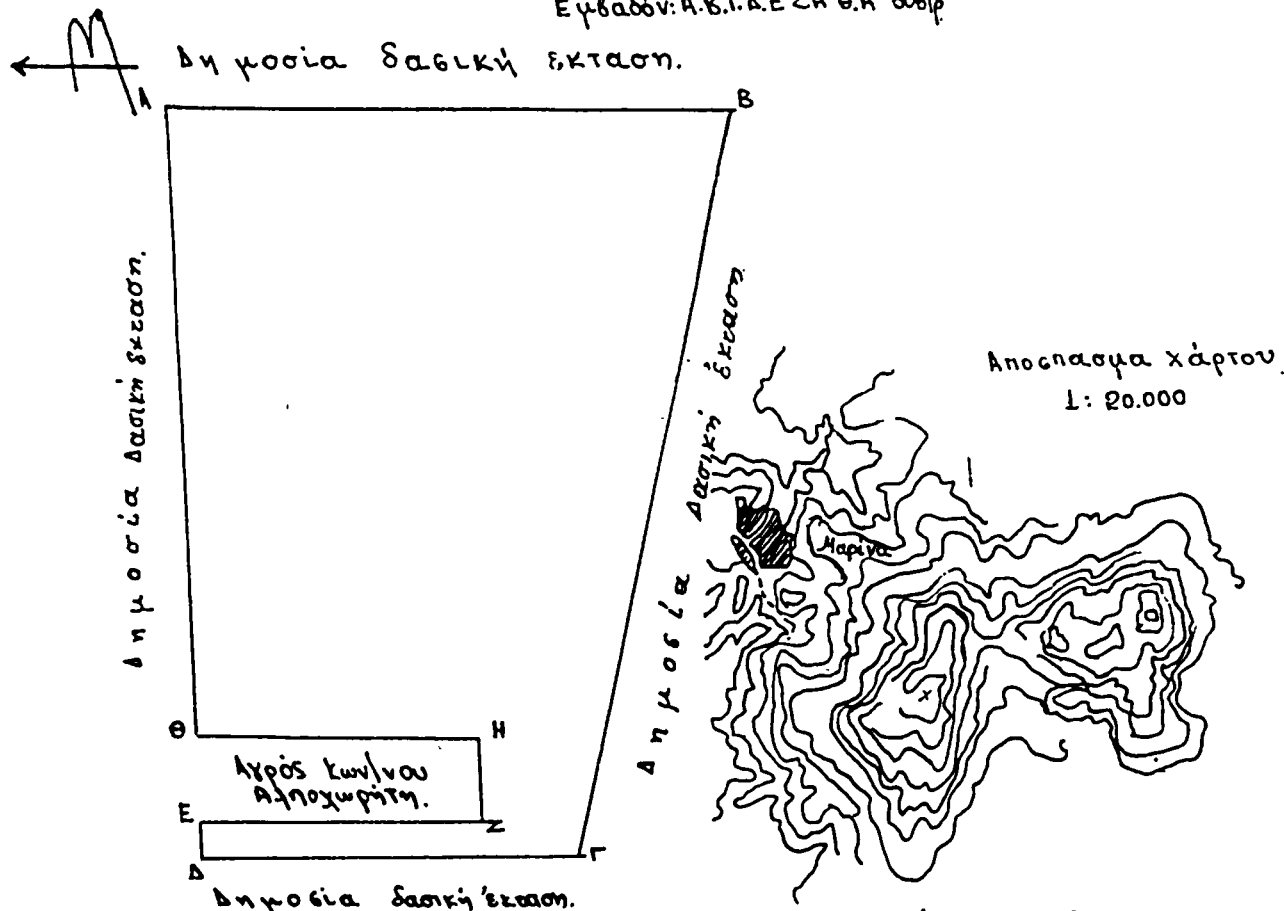 Εμβαδόν: Α.Β.Γ.Δ.Ε Ζ Η Θ.Α
Δημοσία δασική έκταση.
Α
Β
Δημοσία Δασική έκταση.
Δημοσία Δασική έκταση.
Αποσπασμα χάρτου
1: 20.000
Μαρίνα
Θ
Η
Αγρός Κων/νου
Ε
Ζ
Δ
Γ
Δημοσία δασική έκταση.